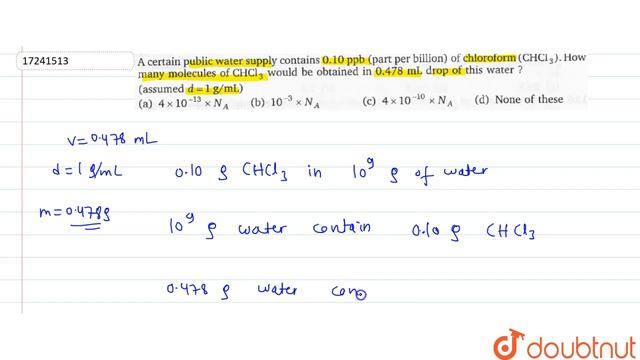 17241513
A certain public water supply contains 0.10 ppb (part per billion) of chloroform (CHCl₃). How
many molecules of CHCl₃ would be obtained in 0.478 mL drop of this water ?
(assumed d = 1 g/mL)
(a) 4 × 10⁻¹³ × N_A (b) 10⁻³ × N_A (c) 4 × 10⁻¹⁰ × N_A (d) None of these
V = 0.478 mL
d = 1 g/mL 0.10 g CHCl₃ in 10⁹ g of water
m = 0.478g
10⁹ g water contain 0.10 g CHCl₃
0.478 g water con
doubtnut